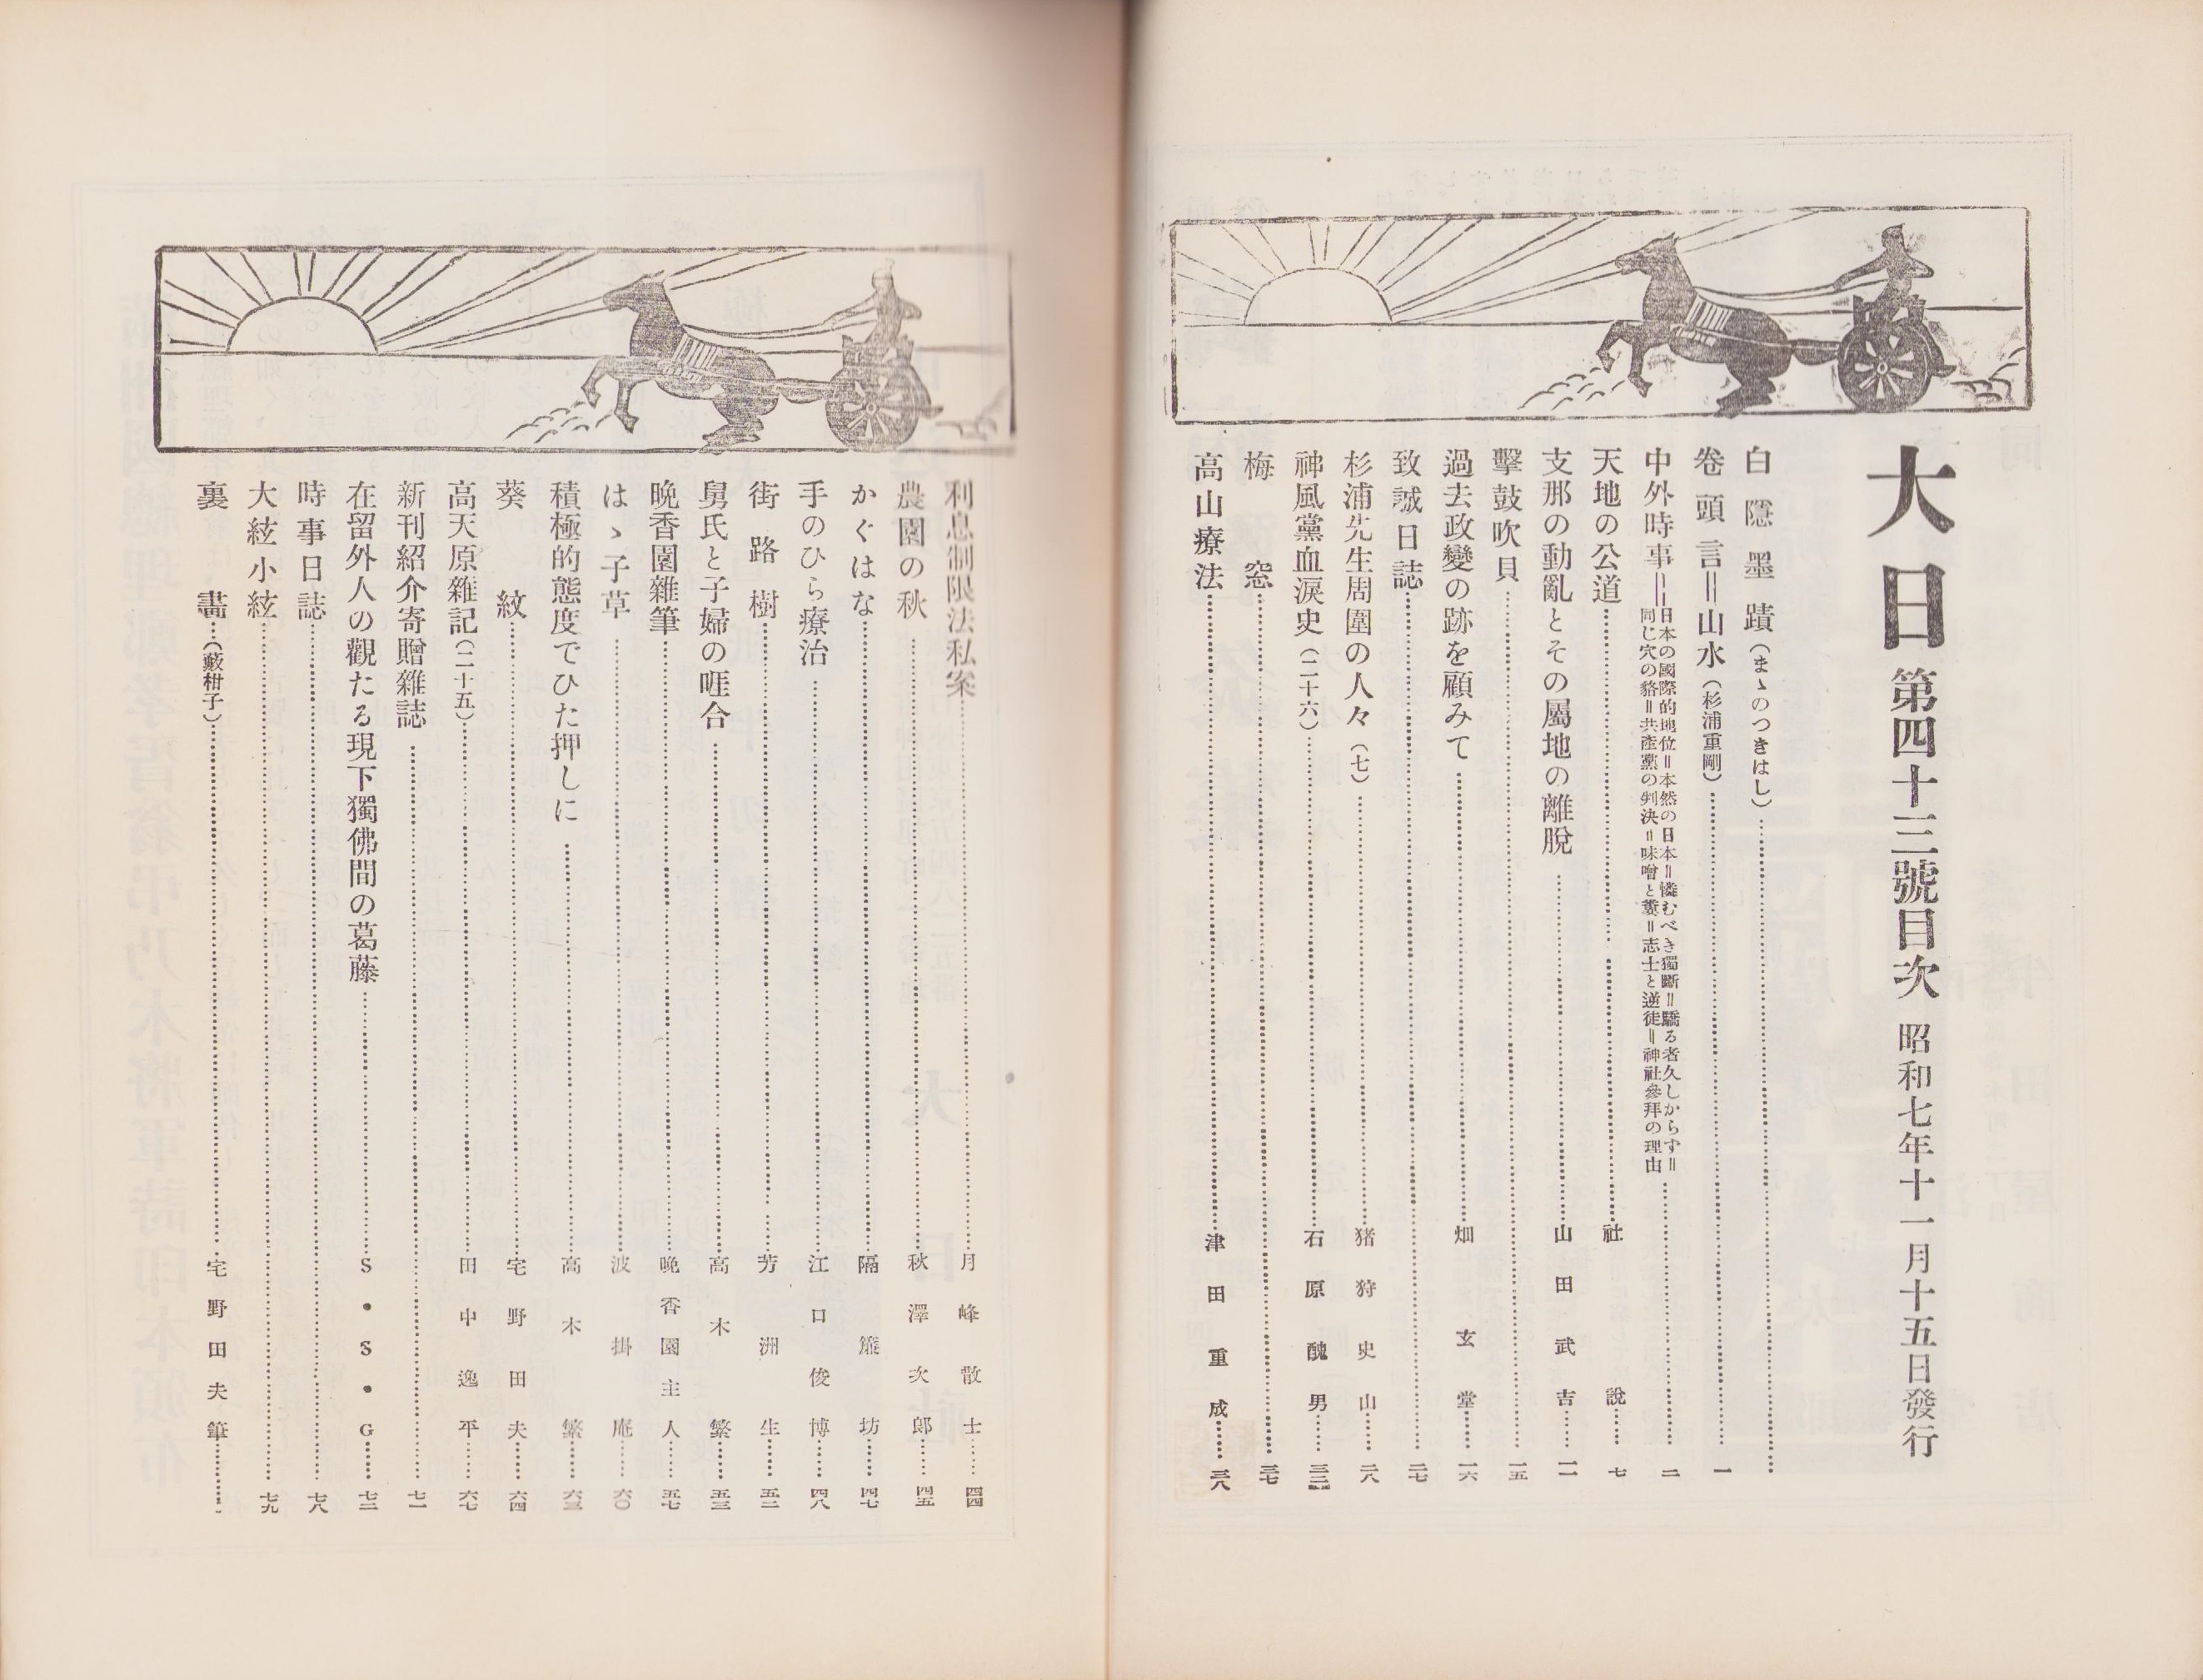 大日 第四十三號目次 昭和七年十一月十五日發行
白隱墨蹟(まゝのつきはし)
卷頭言＝山水(杉浦重剛)……一
中外時事＝日本の國際的地位＝本然の日本＝憐むべき獨斷＝驕る者久しからず＝
同じ穴の貉＝共產黨の判決＝味噌と糞＝志士と逆徒＝神社參拜の理由……二
天地の公道……社說……七
支那の動亂とその屬地の離脫……山田武吉……一一
擊鼓吹貝……一五
過去政變の跡を顧みて……畑玄堂……一六
致誠日誌……二七
杉浦先生周圍の人々(七)……猪狩史山……二八
神風黨血淚史(二十六)……石原醜男……三二
梅窓……三七
高山療法……津田重成……三八
利息制限法私案……月峰散士……四四
農園の秋……秋澤次郞……四五
かぐはな……隔簾坊……四七
手のひら療治……江口俊博……四八
街路樹……芳洲生……五二
舅氏と子婦の啀合……高木繁……五三
晚香園雜筆……晚香園主人……五七
はゝ子草……波掛庵……六〇
積極的態度でひた押しに……高木繁……六三
葵紋……宅野田夫……六四
高天原雜記(二十五)……田中逸平……六七
新刊紹介寄贈雜誌……七一
在留外人の觀たる現下獨佛間の葛藤……S・S・G……七二
時事日誌……七八
大絃小絃……七九
裏畫…(藪柑子)……宅野田夫筆……